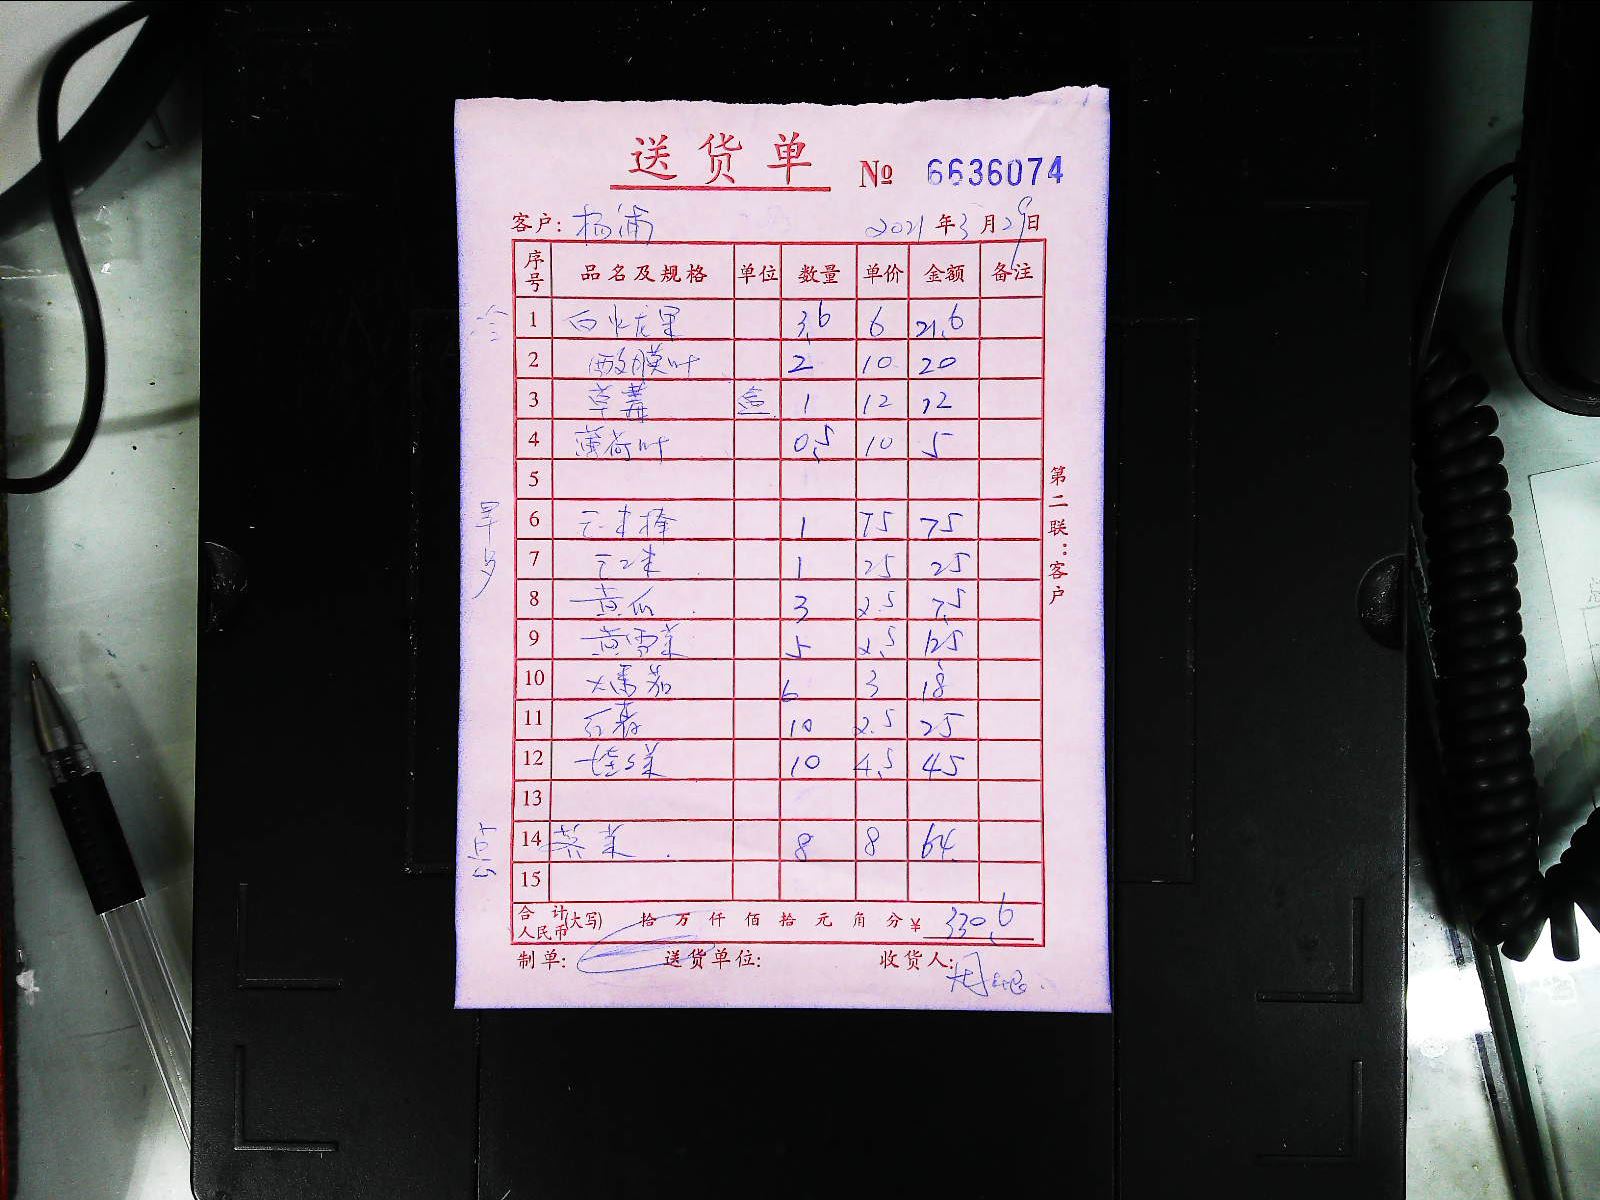 送货单 № 6636074
客户: 杨浦 2021年3月29日
序号 品名及规格 单位 数量 单价 金额 备注
1 白火龙果 3.6 6 21.6
2 酸膜叶 2 10 20
3 草莓 盒 1 12 12
4 薄荷叶 0.5 10 5
5
6 1 75 75
7 1 25 25
8 黄瓜 3 2.5 7.5
9 5 2.5 12.5
10 大番茄 6 3 18
11 10 2.5 25
12 10 4.5 45
13
14 荠菜 8 8 64
15
合计人民币(大写) 拾 万 仟 佰 拾 元 角 分 ¥ 330.6
制单: 送货单位: 收货人:
第二联:客户
点